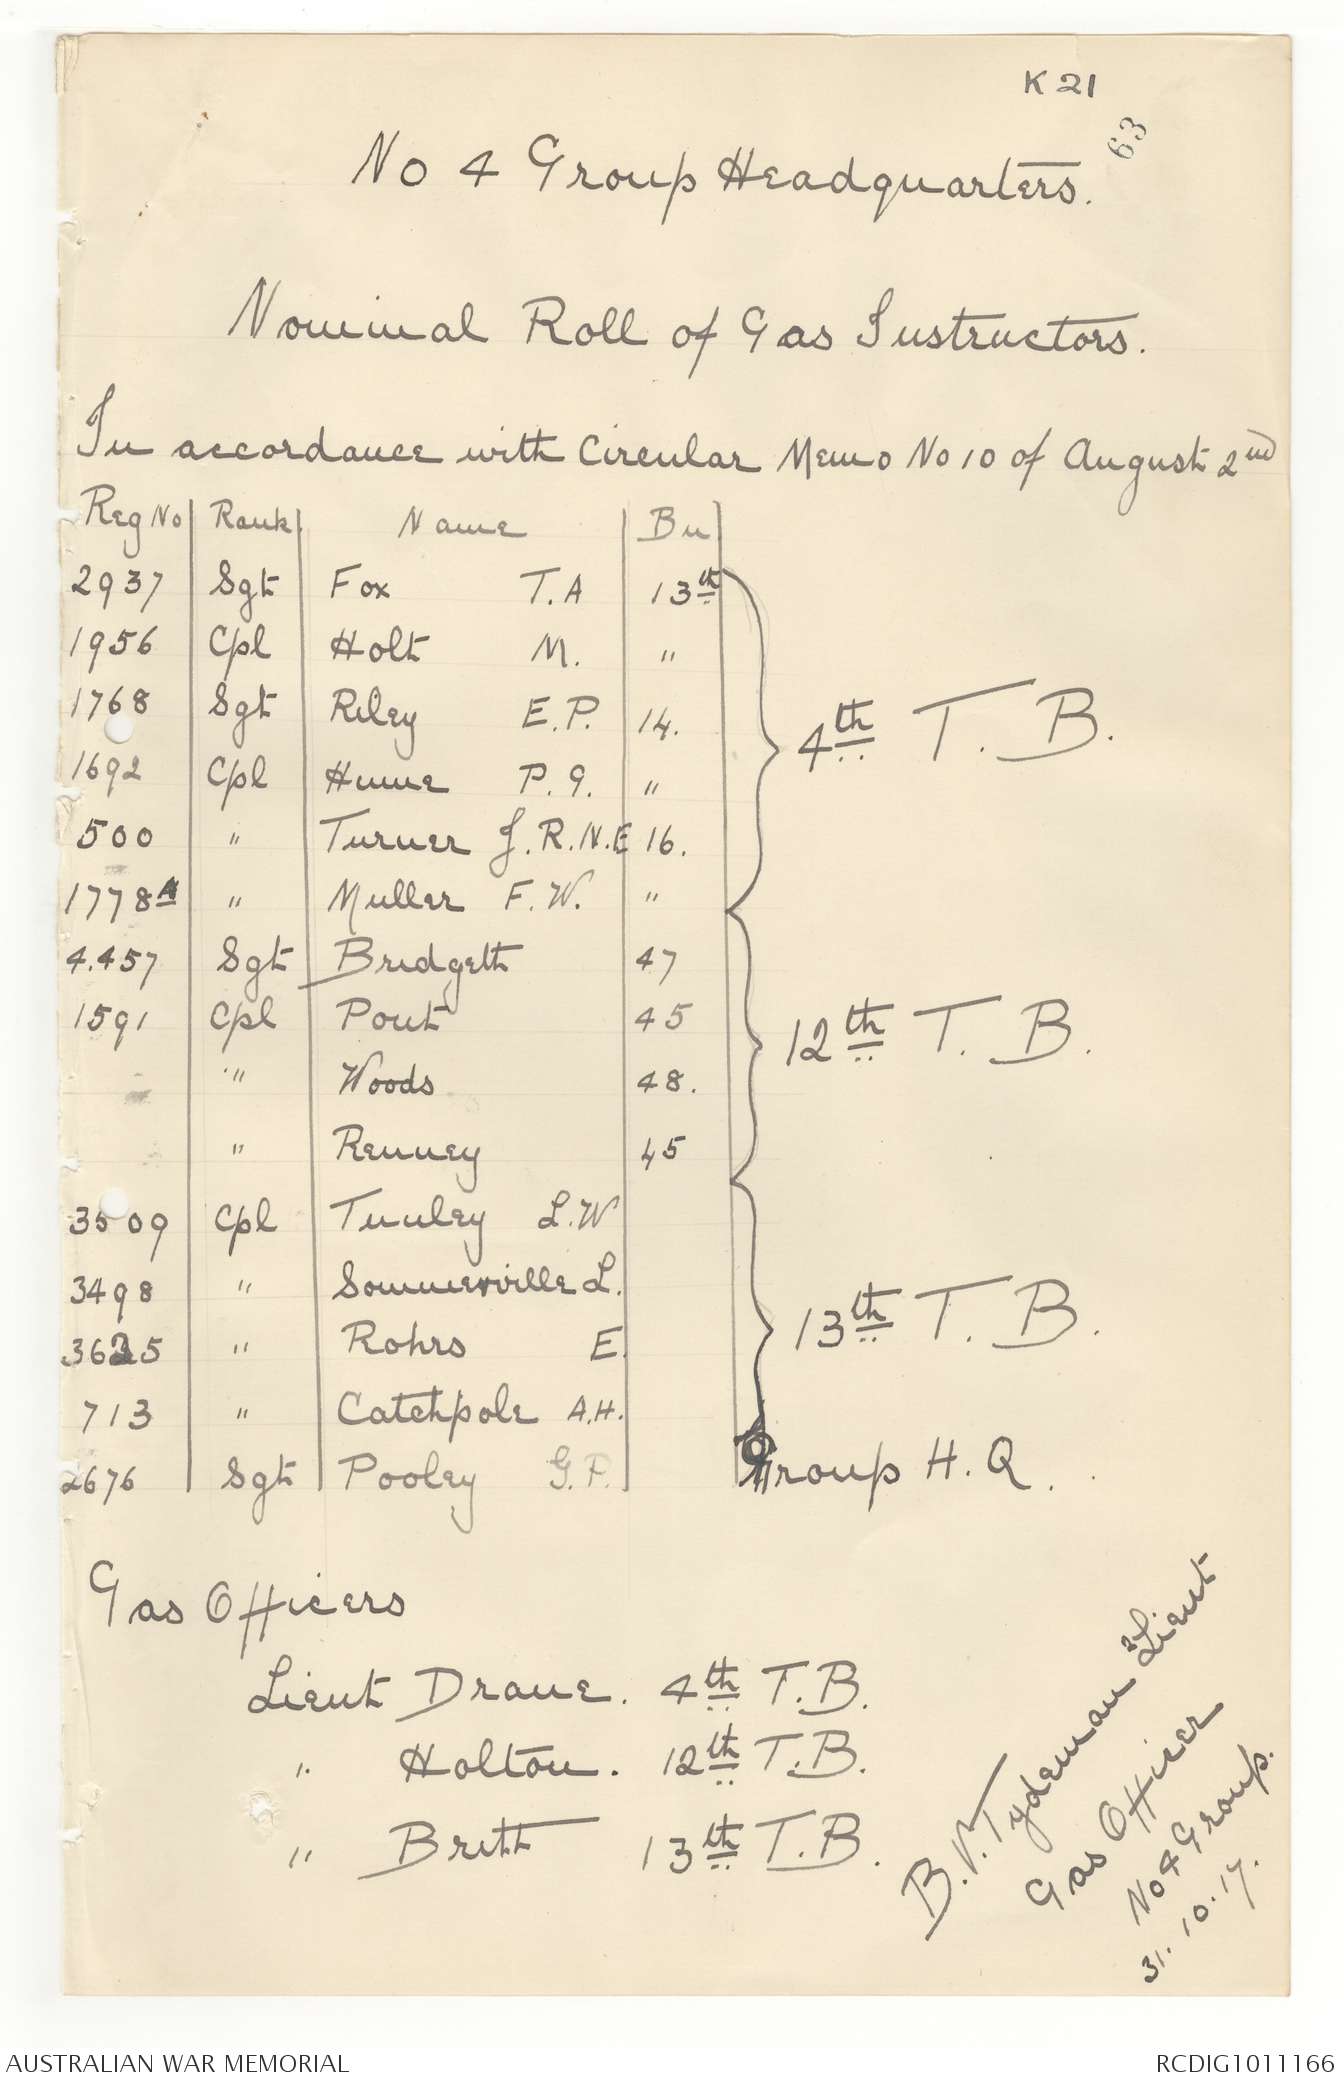 K 21
63
No 4 Group Headquarters.
Nominal Roll of Gas Instructors.
In accordance with Circular Memo No 10 of August 2nd
Reg No Rank Name Bn
2937 Sgt Fox T.A 13th
1956 Cpl Holt M. "
1768 Sgt Riley E.P. 14.
1692 Cpl Hume P.G. "
500 " Turner J.R.N.E 16.
1778A " Muller F.W. "
4th T.B.
4.457 Sgt Bridgett 47
1591 Cpl Pout 45
" Woods 48.
" Renney 45
12th T.B.
3509 Cpl Tunley L.W
3498 " Sommerville L.
3625 " Rohrs E.
713 " Catchpole A.H.
13th T.B.
2676 Sgt Pooley G.P. Group H.Q.
Gas Officers
Lieut Drane. 4th T.B.
" Holton. 12th T.B.
" Britt 13th T.B.
B.V. Tydeman 2Lieut
Gas Officer
No 4 Group.
31.10.17.
AUSTRALIAN WAR MEMORIAL
RCDIG1011166